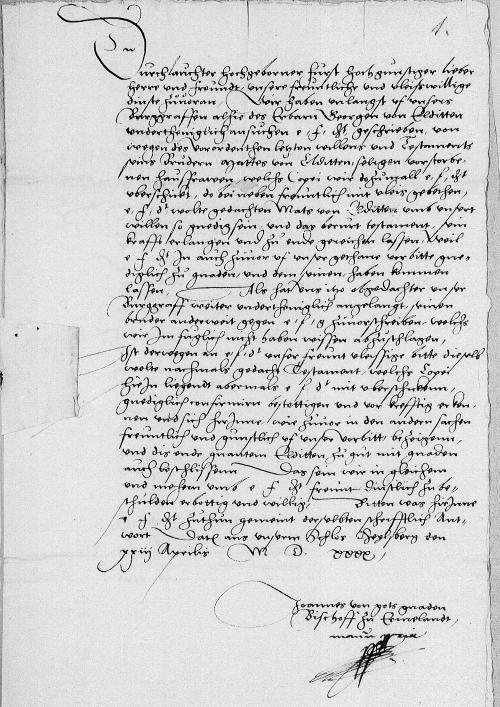 1.
Durchlauchter hochgeborner furst hochgunstiger lieber
herre und freundt, unsere freuntliche und vleiswillige
dinste zuvoran. Wir haben unlangst uf unsers
Burggraffen alhie des Erbarn Georgen von Elditten
underthenigklich ansuchen e f dt geschrieben, von
wegen des vorordenthen letzten willens und Testaments
seins Brudern Mattes von Elditten, seligen vorstorbe-
nen haußfrawen, welchs Copei wir dozumall e f dt
uberschickt, do beineben freuntlich mit vleis gebethen,
e f dt wolte gedachten Mats von Elditten umb unsert
willen so gnedig sein, und das berurt testament, sein
krafft erlangen und zu ende gereichen lassen, weil
e f dt In auch zuvor uf unser gethane vorbitte gne-
diglich zu gnaden, und dem seinen, haben kommen
lassen. Als hat uns itzo obgedachter unser
Burggraff weiter underthenigklich angelangt, seinen
bruder anderweit gegen e f g zuvorschreiben, welchs
wir Im fuglich nicht haben wissen abzuschlagen,
Ist derwegen an e f dt unser freunt vleissige bitte dieselb
wolte nachmals gedacht Testament, welchs Copei
hirIn liegendt abermals e f dt mit uberschicken,
gnediglich confirmiren bestettigen und vor krefftig erken-
nen und sich hirInne, wie zuvor in den andern sachen
freuntlich und gunstlich uf unser vorbitt, bezeigenn,
und dis ende gnantem Elditten zu gut mit gnaden
auch beschlissenn. Das sein wir in gleichem
und mehrem umb e f dt freunt dinstlich zu be-
schulden erbottig und willig, Bitten was hirInne
e f dt zuthun gemeint derselbten schrifftlich Ant-
wort. Dat aus unserm Schlos Heylsberg den
xxiij Aprilis M D xxxx,
Joannes von gots gnaden
Bischoff zu Ermelandt,
manu ppria